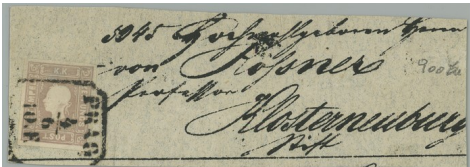 5045 Hochwohlgeboren Herrn
von Rössner
900 Kc
Professor
Klosterneuburg
Stift
PRAG
4/6